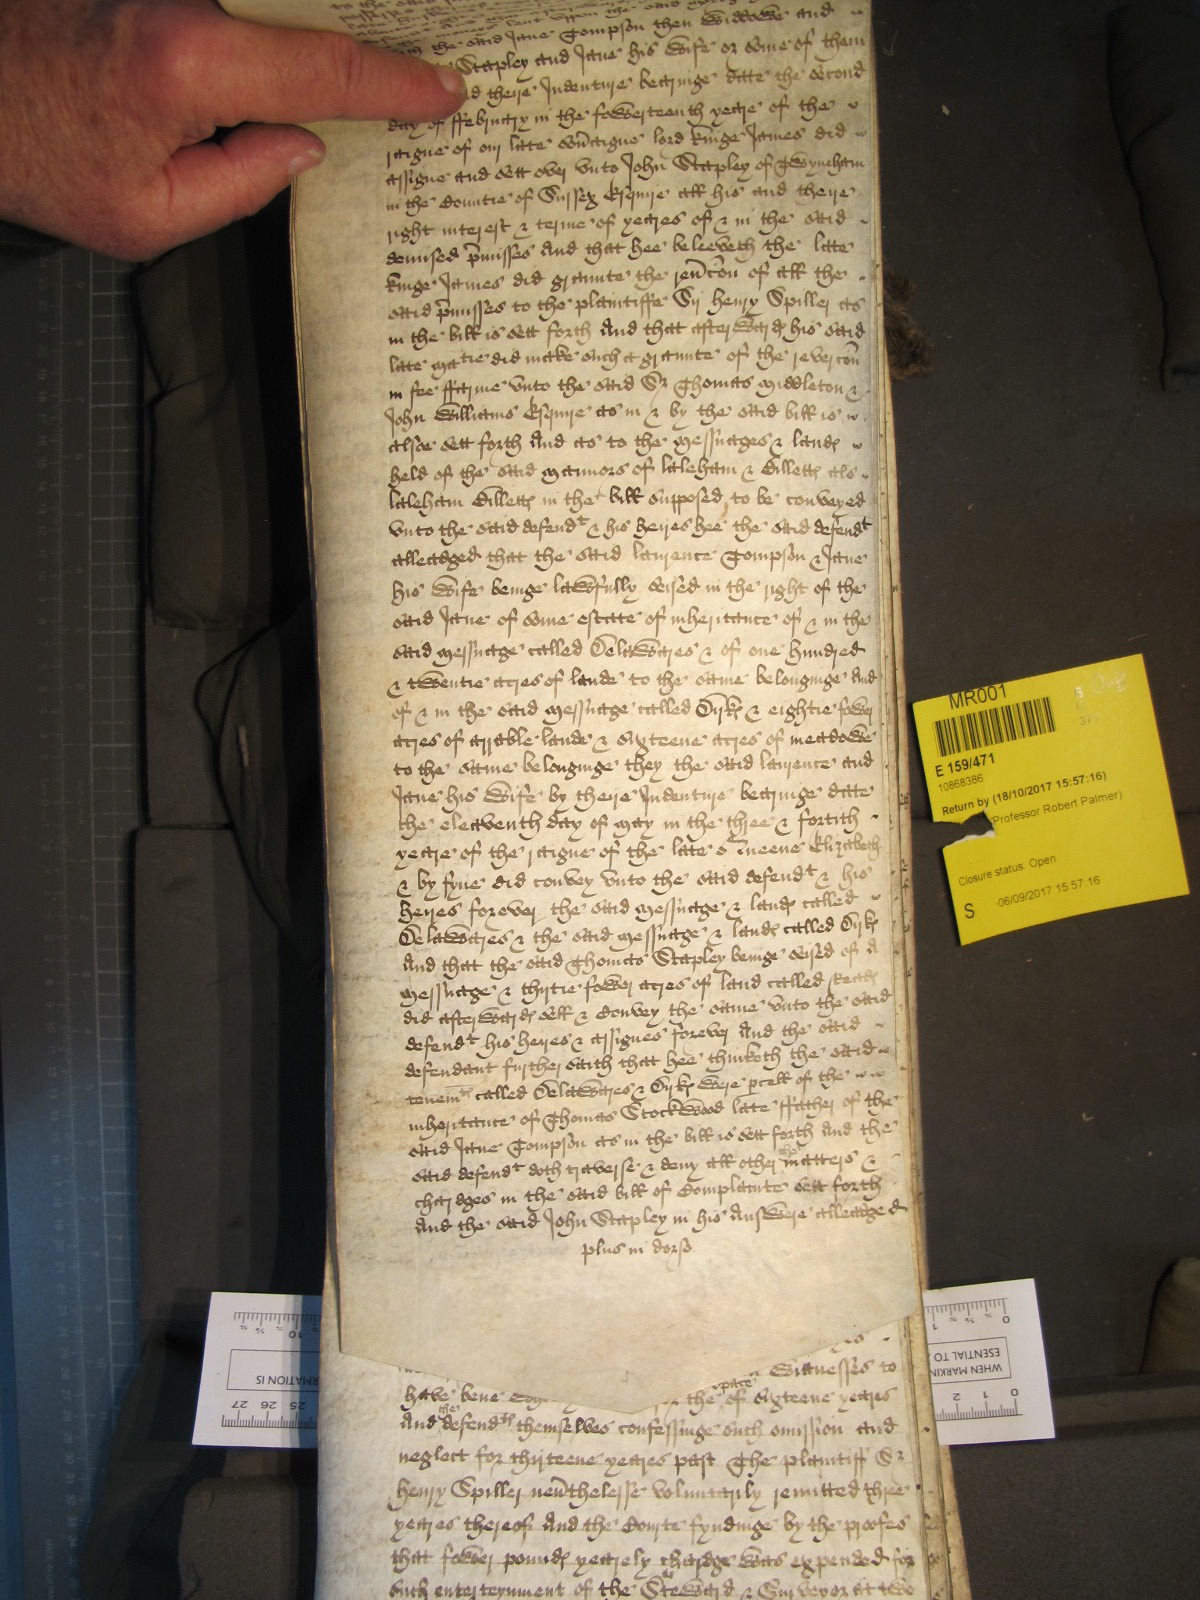 to the said
the said Jane Gompson then Widdowe and
Stapley and Jane his Wife or some of them
theire Indenture bearinge date the second
day of ffebruary in the fowerteenth yeare of the
raigne of our late sou̅aigne lord kinge James did
assigne and sett over vnto John Stapley of Twyneham
in the Countie of Sussex Esquire all his and theire
right interest & terme of yeares of & in the said
demised p̅misses And that hee beleeveth the late
kinge James did graunte the reu̅c̅on of all the
said p̅misses to the plaintiffe Sir henry Spiller as
in the bill is sett forth And that afterward his said
late matie did make such a graunte of the reverc̅on
in fee ffarme vnto the said Sr Thomas Middleton &
John Williams Esquire as in & by the said bill is
alsoe sett forth And as to the messuages & land
held of the said mannors of laleham & Billett als
laleham Billett in the bill supposed to be conveyed
vnto the said defendt & his heires hee the said defendt
alleadged that the said laurence Gompson & Jane
his Wife beinge lawfully seised in the right of the
said Jane of some estate of inheritance of & in the
said messuage called Delawares & of one hundred
& twentie acres of lande to the same belonginge And
of & in the said messuage called Dirk & eightie fower
acres of arrable lande & sixteene acres of meadowe
to the same belonginge they the said laurence and
Jane his Wife by theire Indenture bearinge date
the eleaventh day of may in the three & fortith
yeare of the raigne of the late Queene Elizabeth
& by fyne did convey vnto the said defendt & his
heires forever the said messuage & land called
Delawares & the said messuage & land called Dirk
And that the said Thomas Stapley beinge seised of a
messuage & thirtie fower acres of land called
did afterward sell & convey the same vnto the said
defendt his heires & assignes forever And the said
defendant further saith that hee thinketh the said
tenemts called Delawares & Dirk were p̅cell of the
inheritance of Thomas Stockwood late ffather of the
said Jane Gompson as in the bill is sett forth And the
said defendt doth traverse & deny all other the matters &
chardges in the said bill of Complainte sett forth
And the said John Stapley in his Answere alleaged
plus in dorso
Witnesses to
have bene the space of sixteene yeares
And the defendts themselves confessinge such omission and
neglect for thirteene yeares past The plaintiff Sr
henry Spiller neu̅thelesse voluntarily remitted three
yeares thereof And the Courte fyndinge by the proofes
that fower pound yearely chardge was expended for
such enterteynment of the Steward & Surveyor at two
MR001
E 159/471
10868386
Return by (18/10/2017 15:57:16)
(Professor Robert Palmer)
Closure status: Open
S 06/09/2017 15:57:16
WHEN MARKIN
ESENTIAL TO
RMATION IS
0 1 2
10
25 26 27